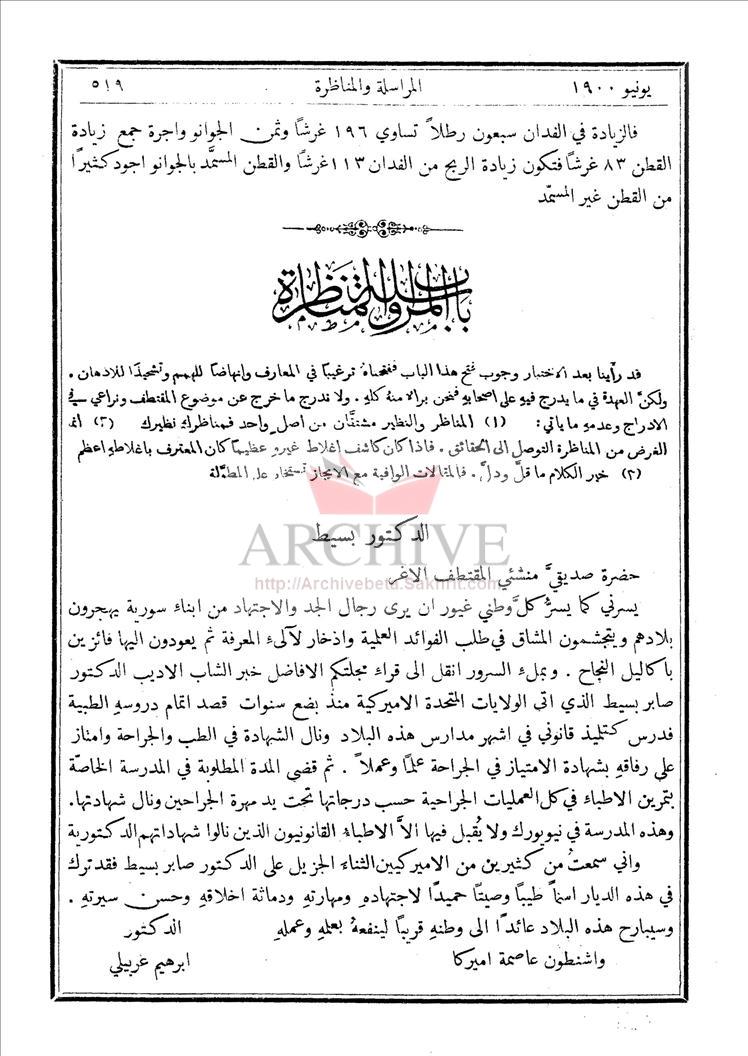 يونيو ١٩٠٠
المراسلة والمناظرة
٥١٩
فالزيادة في الفدان سبعون رطلاً تساوي ١٩٦ غرشًا وثمن الجوانو واجرة جمع زيادة
القطن ٨٣ غرشًا فتكون زيادة الربح من الفدان ١١٣ غرشًا والقطن المسمَّد بالجوانو اجود كثيرًا
من القطن غير المسمّد
باب المراسلة والمناظرة
قد رأينا بعد الاختبار وجوب فتح هذا الباب ففتحناه ترغيبًا في المعارف وإنهاضًا للهمم وتشحيذًا للاذهان .
ولكنَّ العهدة في ما يدرج فيهِ على اصحابهِ فنحن برالا منهُ كلهِ . ولا ندرج ما خرج عن موضوع المقتطف ونراعي في
الادراج وعدمهِ ما يأتي : (١) المناظر والنظير مشتقَّان من اصل واحد فمناظرك نظيرك (٢) انما
الغرض من المناظرة التوصل الى الحقائق . فاذا كان كاشف اغلاط غيرهِ عظيمًا كان المعترف باغلاطهِ اعظم
(٣) خير الكلام ما قلَّ ودلَّ . فالمقالات الوافية مع الايجاز تستخار على المطوَّلة
ARCHIVE
http://Archivebeta.Sakhrit.com
الدكتور بسيط
حضرة صديقيَّ منشئي المقتطف الاغر
يسرني كما يسرُّ كلَّ وطني غيور ان يرى رجال الجد والاجتهاد من ابناء سورية يهجرون
بلادهم ويتجشمون المشاق في طلب الفوائد العلمية واذخار لآلىء المعرفة ثم يعودون اليها فائزين
باكاليل النجاح . وبملء السرور انقل الى قراء مجلتكم الافاضل خبر الشاب الاديب الدكتور
صابر بسيط الذي اتى الولايات المتحدة الاميركية منذ بضع سنوات قصد اتمام دروسهِ الطبية
فدرس كتلميذ قانوني في اشهر مدارس هذه البلاد ونال الشهادة في الطب والجراحة وامتاز
على رفاقهِ بشهادة الامتياز في الجراحة علمًا وعملاً . ثم قضى المدة المطلوبة في المدرسة الخاصّة
بتمرين الاطباء في كل العمليات الجراحية حسب درجاتها تحت يد مهرة الجراحين ونال شهادتها.
وهذه المدرسة في نيويورك ولا يُقبل فيها الاَّ الاطباء القانونيون الذين نالوا شهاداتهم الدكتورية
واني سمعتُ من كثيرين من الاميركيين الثناء الجزيل على الدكتور صابر بسيط فقد ترك
في هذه الديار اسمًا طيبًا وصيتًا حميدًا لاجتهادهِ ومهارتهِ ودماثة اخلاقهِ وحسن سيرتهِ .
وسيبارح هذه البلاد عائدًا الى وطنهِ قريبًا لينفعهُ بعلمهِ وعملهِ
الدكتور
واشنطون عاصمة اميركا
ابرهيم عربيلي